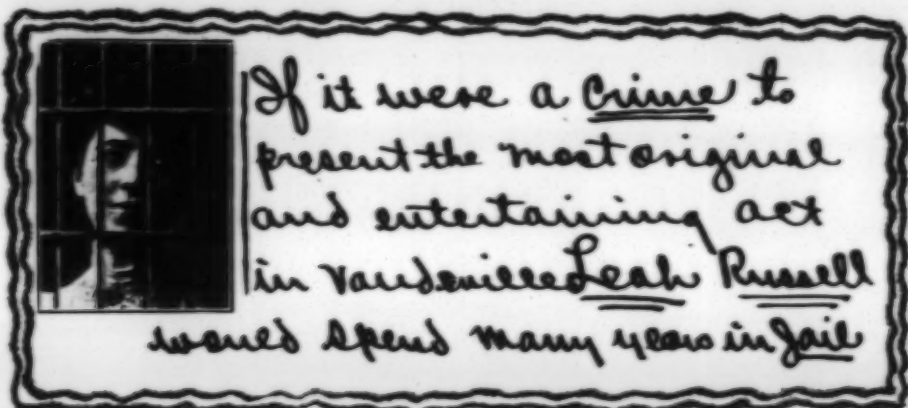 If it were a Crime to
present the most original
and entertaining act
in Vaudeville Leah Russell
would spend many years in Jail